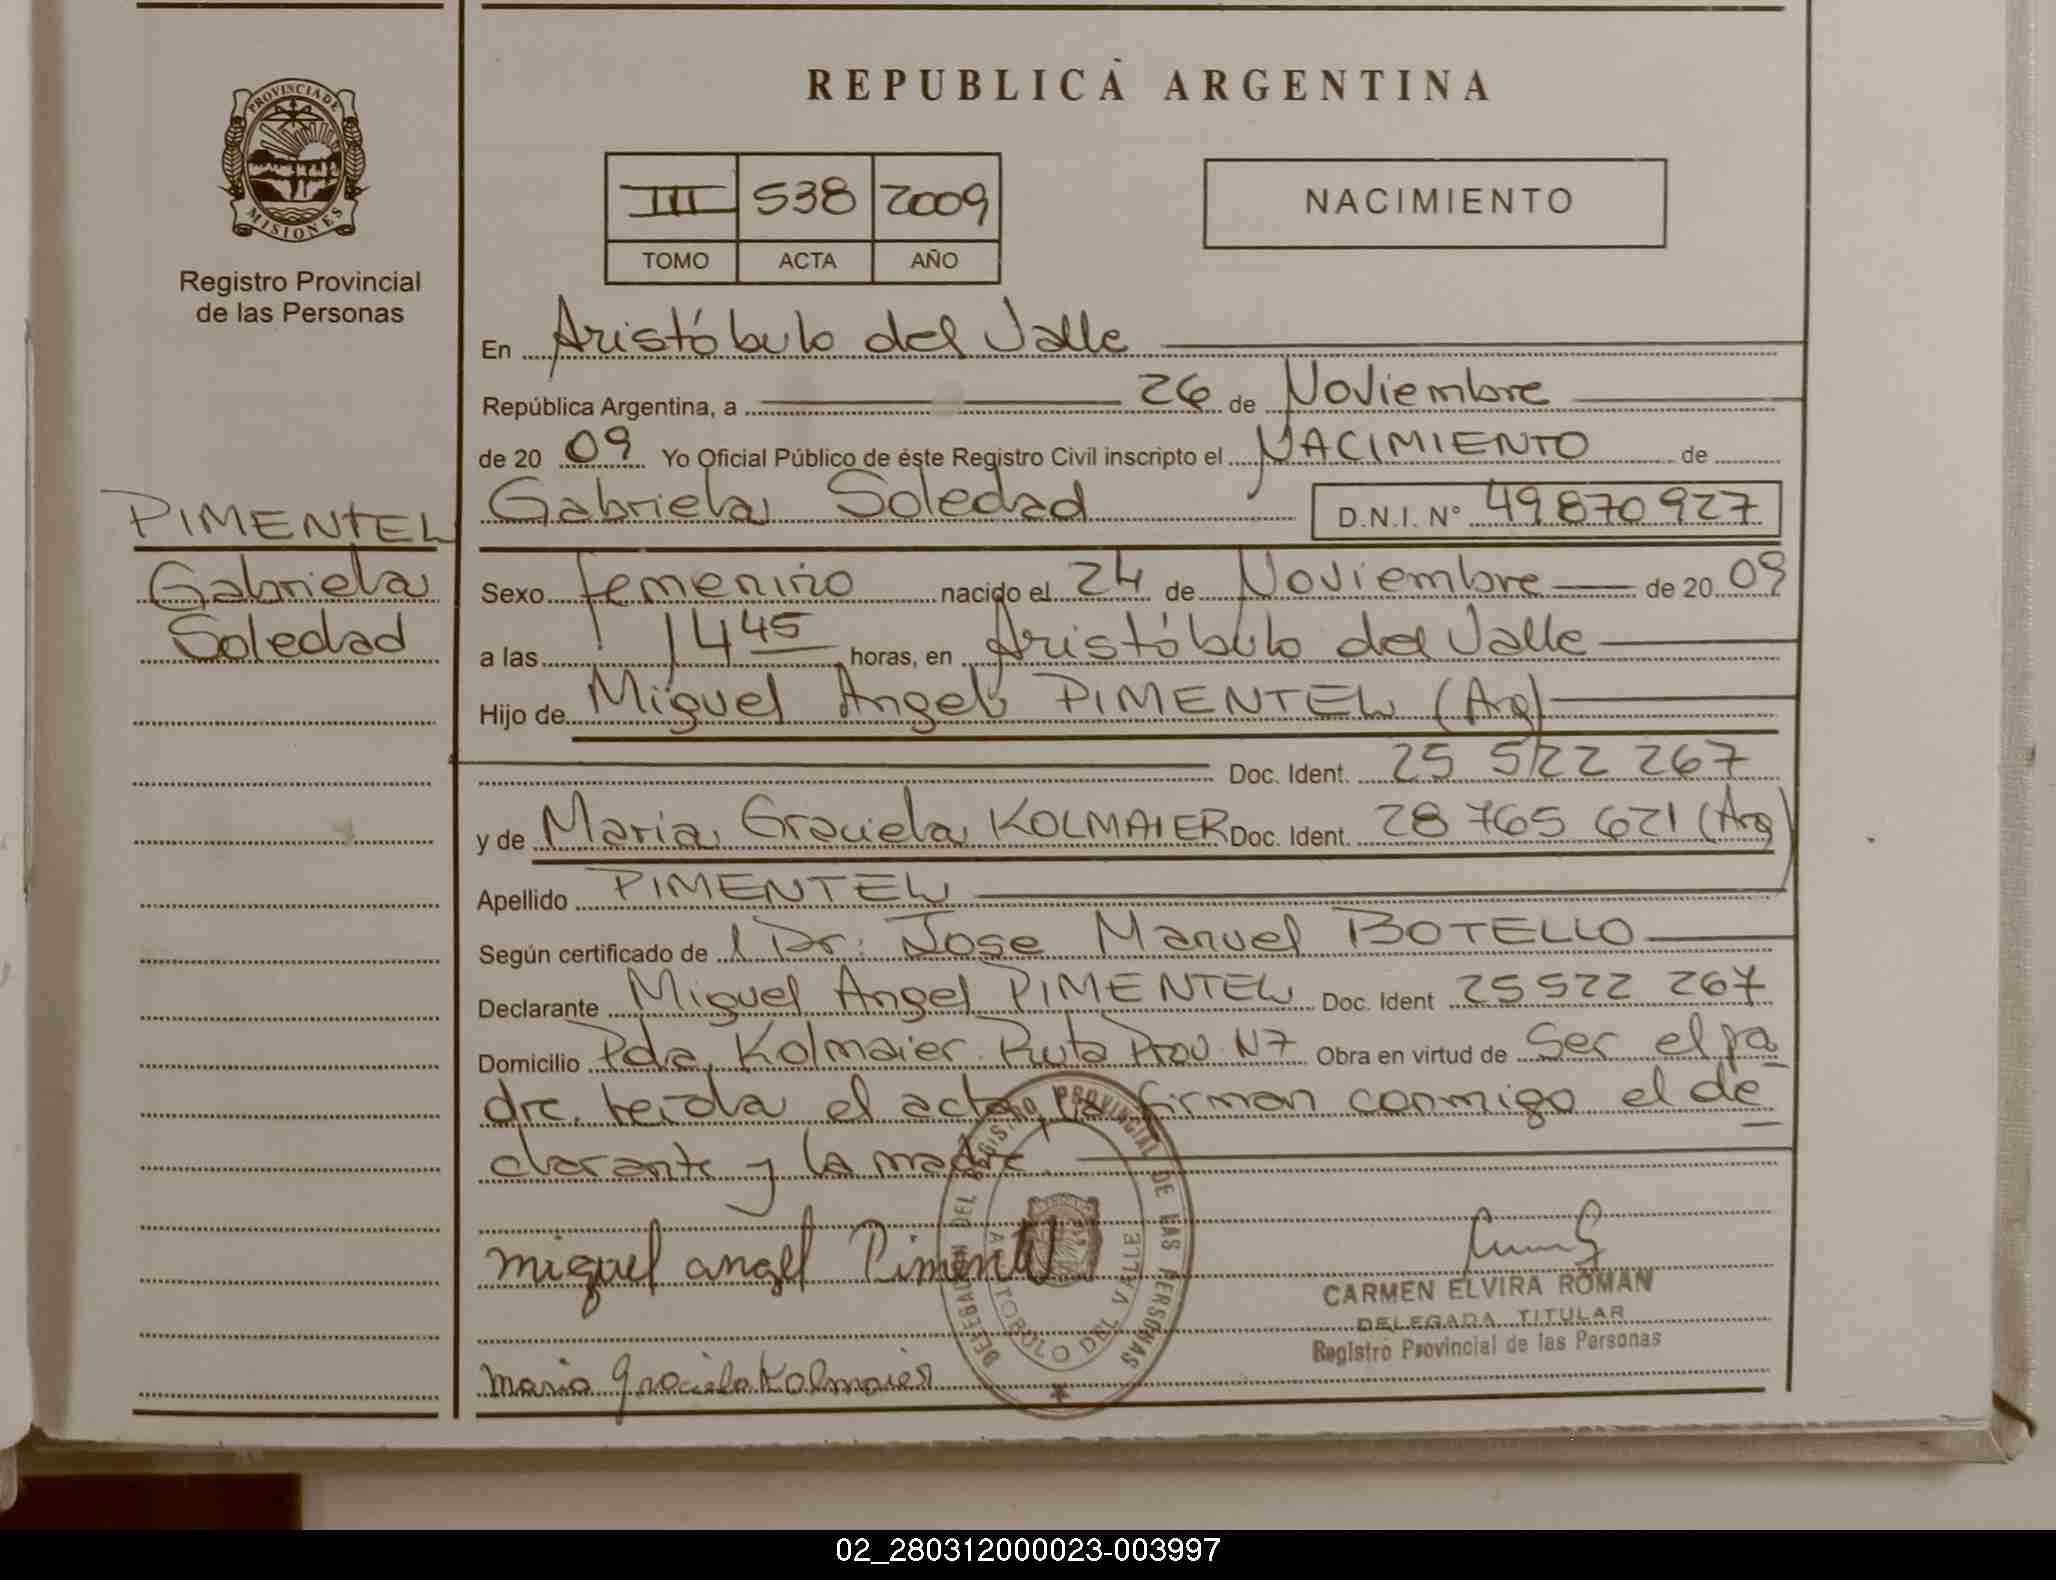 REPUBLICA ARGENTINA
PROVINCIA DE
MISIONES
Registro Provincial
de las Personas
III 538 2009
TOMO ACTA AÑO
NACIMIENTO
En Aristóbulo del Valle
República Argentina, a 26 de Noviembre
de 20 09 Yo Oficial Público de éste Registro Civil inscripto el NACIMIENTO de
Gabriela Soledad D.N.I. N° 49870927
PIMENTEL
Gabriela
Soledad
Sexo femenino nacido el 24 de Noviembre de 20 09
a las 14 45 horas, en Aristóbulo del Valle
Hijo de Miguel Angel PIMENTEL (Arg)
Doc. Ident. 25 522 267
y de Maria Graciela KOLMAIER Doc. Ident. 28 765 621 (Arg)
Apellido PIMENTEL
Según certificado de l Dr: Jose Manuel BOTELLO
Declarante Miguel Angel PIMENTEL Doc. Ident 25522 267
Domicilio Pda Kolmaier Ruta Prov N7 Obra en virtud de Ser el pa
dre. leida el acta la firman conmigo el de
clarante y la madre.
miguel angel Pimentel
maria graciela Kolmaier
DELEGACION DEL REGISTRO PROVINCIAL DE LAS PERSONAS
ARISTOBULO DEL VALLE
CARMEN ELVIRA ROMAN
DELEGADA TITULAR
Registro Provincial de las Personas
02_280312000023-003997